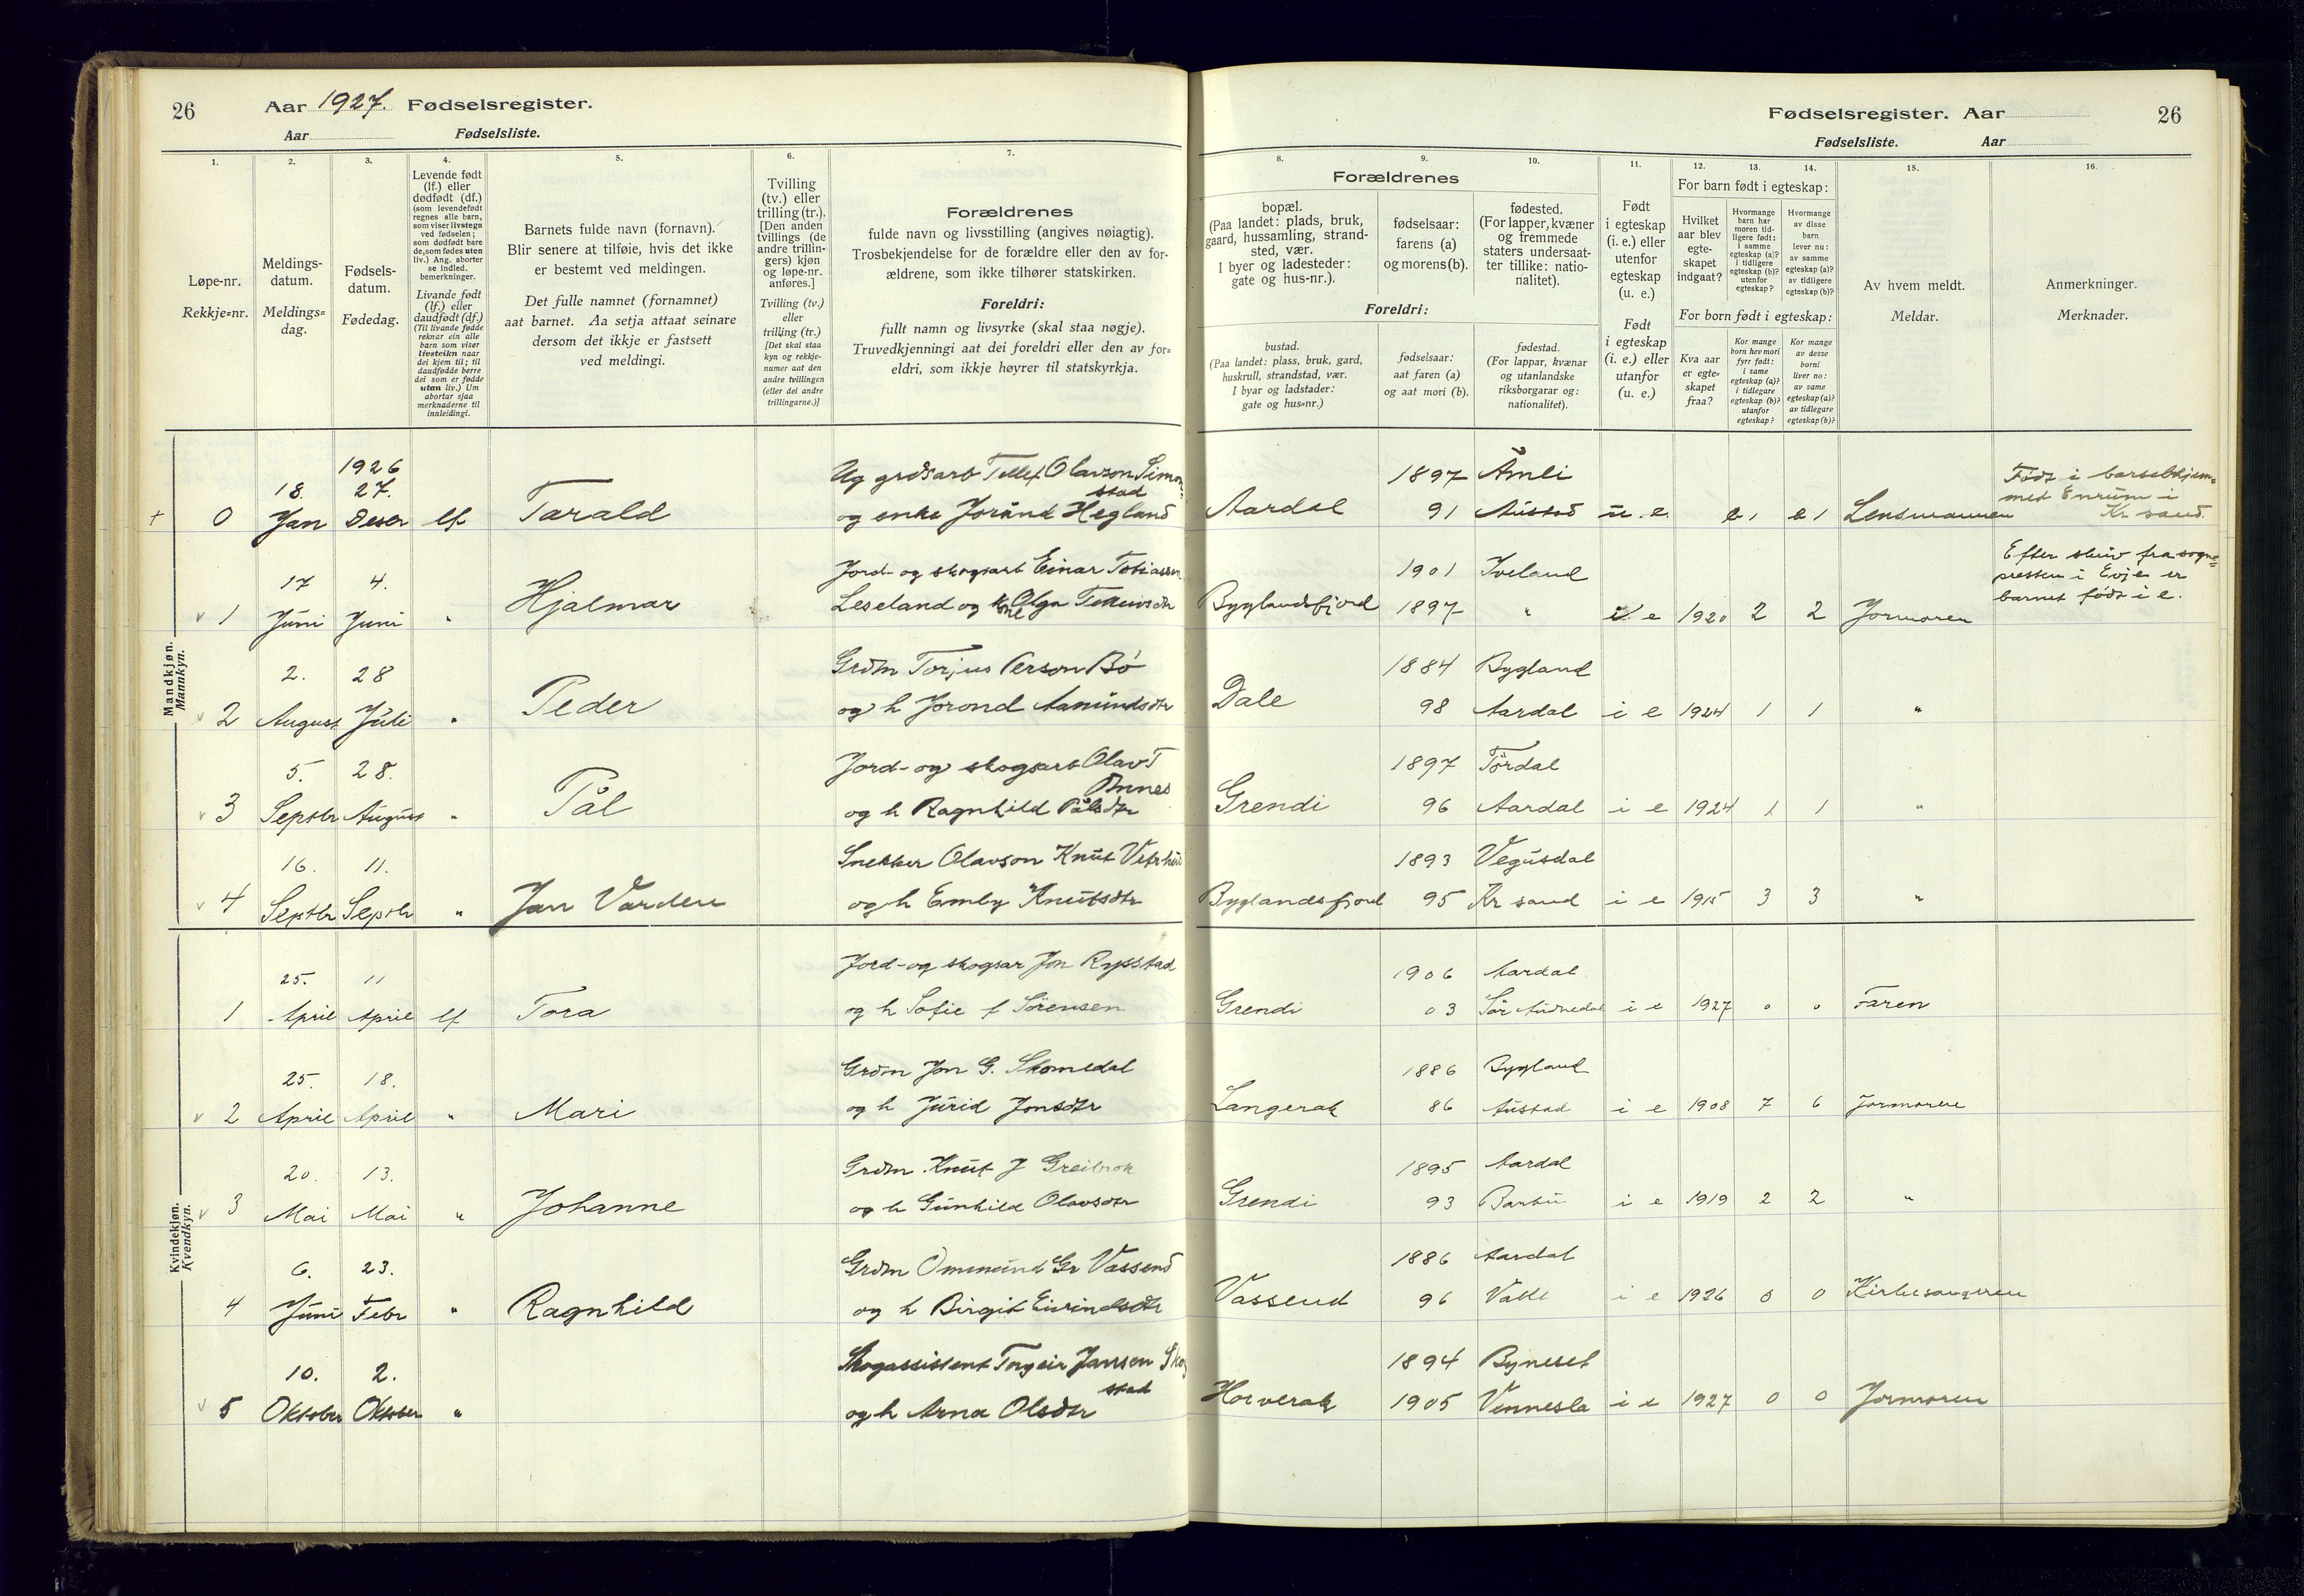 26
Aar 1927. Fødselsregister.
Aar Fødselsliste.
1.
2.
3.
4.
5.
6.
7.
Løpe-nr.
Rekkje=nr.
Meldings-
datum.
Meldings=
dag.
Fødsels-
datum.
Fødedag.
Levende født
(lf.) eller
dødfødt (df.)
(som levendefødt
regnes alle barn,
som viser livstegn
ved fødselen;
som dødfødt bare
de, som fødes uten
liv.) Ang. aborter
se indled.
bemerkninger.
Livande født
(lf.) eller
daudfødt (df.)
(Til livande fødde
reknar ein alle
barn som viser
livsteikn naar
dei kjem til; til
daudfødde berre
dei som er fødde
utan liv.) Um
abortar sjaa
merknaderne til
innleidingi.
Barnets fulde navn (fornavn).
Blir senere at tilføie, hvis det ikke
er bestemt ved meldingen.
Det fulle namnet (fornamnet)
aat barnet. Aa setja attaat seinare
dersom det ikkje er fastsett
ved meldingi.
Tvilling
(tv.) eller
trilling (tr.).
[Den anden
tvillings (de
andre trillin-
gers) kjøn
og løpe-nr.
anføres.]
Tvilling (tv.)
eller
trilling (tr.)
[Det skal staa
kyn og rekkje-
numer aat den
andre tvillingen
(eller dei andre
trillingarne.)]
Forældrenes
fulde navn og livsstilling (angives nøiagtig).
Trosbekjendelse for de forældre eller den av for-
ældrene, som ikke tilhører statskirken.
Foreldri:
fullt namn og livsyrke (skal staa nøgje).
Truvedkjenningi aat dei foreldri eller den av for=
eldri, som ikkje høyrer til statskyrkja.
Mandkjøn.
Mannkyn.
1926
18. 27.
+ 0 Jan Deser lf Tarald
Ug grdsarb Tellef Olavson Simon=
stad
og enke Jorånd Hegland
17 4.
v 1 Juni Juni " Hjalmar
Jord- og skogsarb Einar Tobiassen
Leseland og kne Olga Tellevsdtr
2. 28
v 2 August Juli " Peder
Grdm Torjus Person Bö
og h Jorond Aamundsdtr
5. 28.
v 3 Septbr August " Pål
Jord- og skogsarb Olav T
Önnes
og h Ragnhild Pålsdtr
16. 11.
v 4 Septbr Septbr " Jan Varden
Snekker Olavson Knut Vetrhus
og h Emly Knutsdtr
Kvindekjøn.
Kvendkyn.
25. 11
1 April April lf Tora
Jord- og skogsar Jon Rysstad
og h Sofie f Sörensen
25. 18.
v 2 April April " Mari
Grdm Jon G. Skomedal
og h Jurid Jonsdtr
20. 13.
v 3 Mai Mai " Johanne
Grdm Knut J Greibrok
og h Gunhild Olavsdtr
6. 23.
4 Juni Febr " Ragnhild
Grdm Ommund Gr Vassend
og h Birgit Eivindsdtr
10. 2.
v 5 Oktober Oktober "
Skogassistent Torgeir Jansen Skog
stad
og h Arna Olsdtr
Fødselsregister. Aar 26
Fødselsliste. Aar
8.
9.
10.
11.
12.
13.
14.
15.
16.
Forældrenes
bopæl.
(Paa landet: plads, bruk,
gaard, hussamling, strand-
sted, vær.
I byer og ladesteder:
gate og hus-nr.).
fødselsaar:
farens (a)
og morens (b).
fødested.
(For lapper, kvæner
og fremmede
staters undersaat-
ter tillike: natio-
nalitet).
Foreldri:
bustad.
(Paa landet: plass, bruk, gard,
huskrull, strandstad, vær.
I byar og ladstader:
gate og hus=nr.)
fødselsaar:
aat faren (a)
og aat mori (b).
fødestad.
(For lappar, kvænar
og utanlandske
riksborgarar og:
nationalitet).
Født
i egteskap
(i. e.) eller
utenfor
egteskap
(u. e.)
Født
i egteskap
(i. e.) eller
utanfor
(u. e.)
For barn født i egteskap:
Hvilket
aar blev
egte-
skapet
indgaat?
Hvormange
barn har
moren tid-
ligere født:
i samme
egteskap (a)?
i tidligere
egteskap (b)?
utenfor
egteskap?
Hvormange
av disse
barn
lever nu:
av samme
egteskap (a)?
av tidligere
egteskap (b)?
For born født i egteskap:
Kva aar
er egte-
skapet
fraa?
Kor mange
born hev mori
fyrr født:
i same
egteskap (a)?
i tidlegare
egteskap (b)?
utanfor
egteskap?
Kor mange
av desse
borni
liver no:
av same
egteskap (a)?
av tidlegare
egteskap (b)?
Av hvem meldt.
Meldar.
Anmerkninger.
Merknader.
1897 Åmli
Aardal 91 Austad u. e. 1 1 Lensmannen
Födt i barselhjem=
met Enrum i
Kr sand.
1901 Iveland
Byglandsfjord 1897 " i e 1920 2 2 Jormoren
Efter skriv fra sogne=
presten i Evje er
barnet födt i e.
1884 Bygland
Dale 98 Aardal i e 1924 1 1 "
1897 Tördal
Grendi 96 Aardal i e 1924 1 1 "
1893 Vegusdal
Byglandsfjord 95 Kr sand i e 1915 3 3 "
1906 Aardal
Grendi 03 Sör Audnedal i e 1927 0 0 Faren
1886 Bygland
Langerak 86 Austad i e 1908 7 6 Jormoren
1895 Aardal
Grendi 93 Barbu i e 1919 2 2 "
1886 Aardal
Vassend 96 Valle i e 1926 0 0 Kirkesangeren
1894 Byneset
Horverak 1905 Vennesla i e 1927 0 0 Jormoren